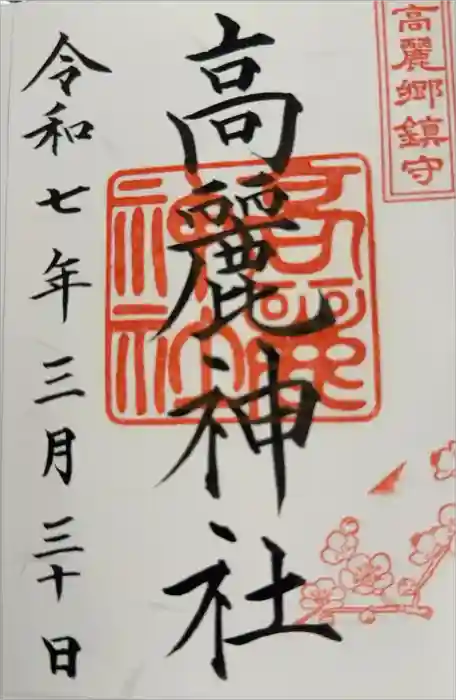 高麗郷鎮守
高麗神社
令和七年三月三十日
高麗神社